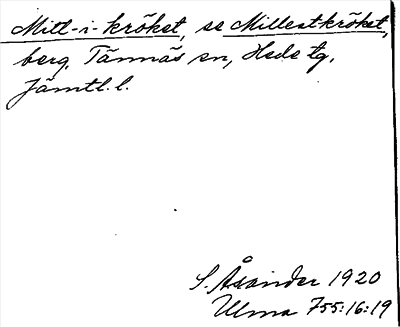 Mitt-i-kröket, se Millestkröket,
berg, Tännäs sn, Hede tg,
Jämtl. l.
S. Åsander 1920
Ulma 755:16:19